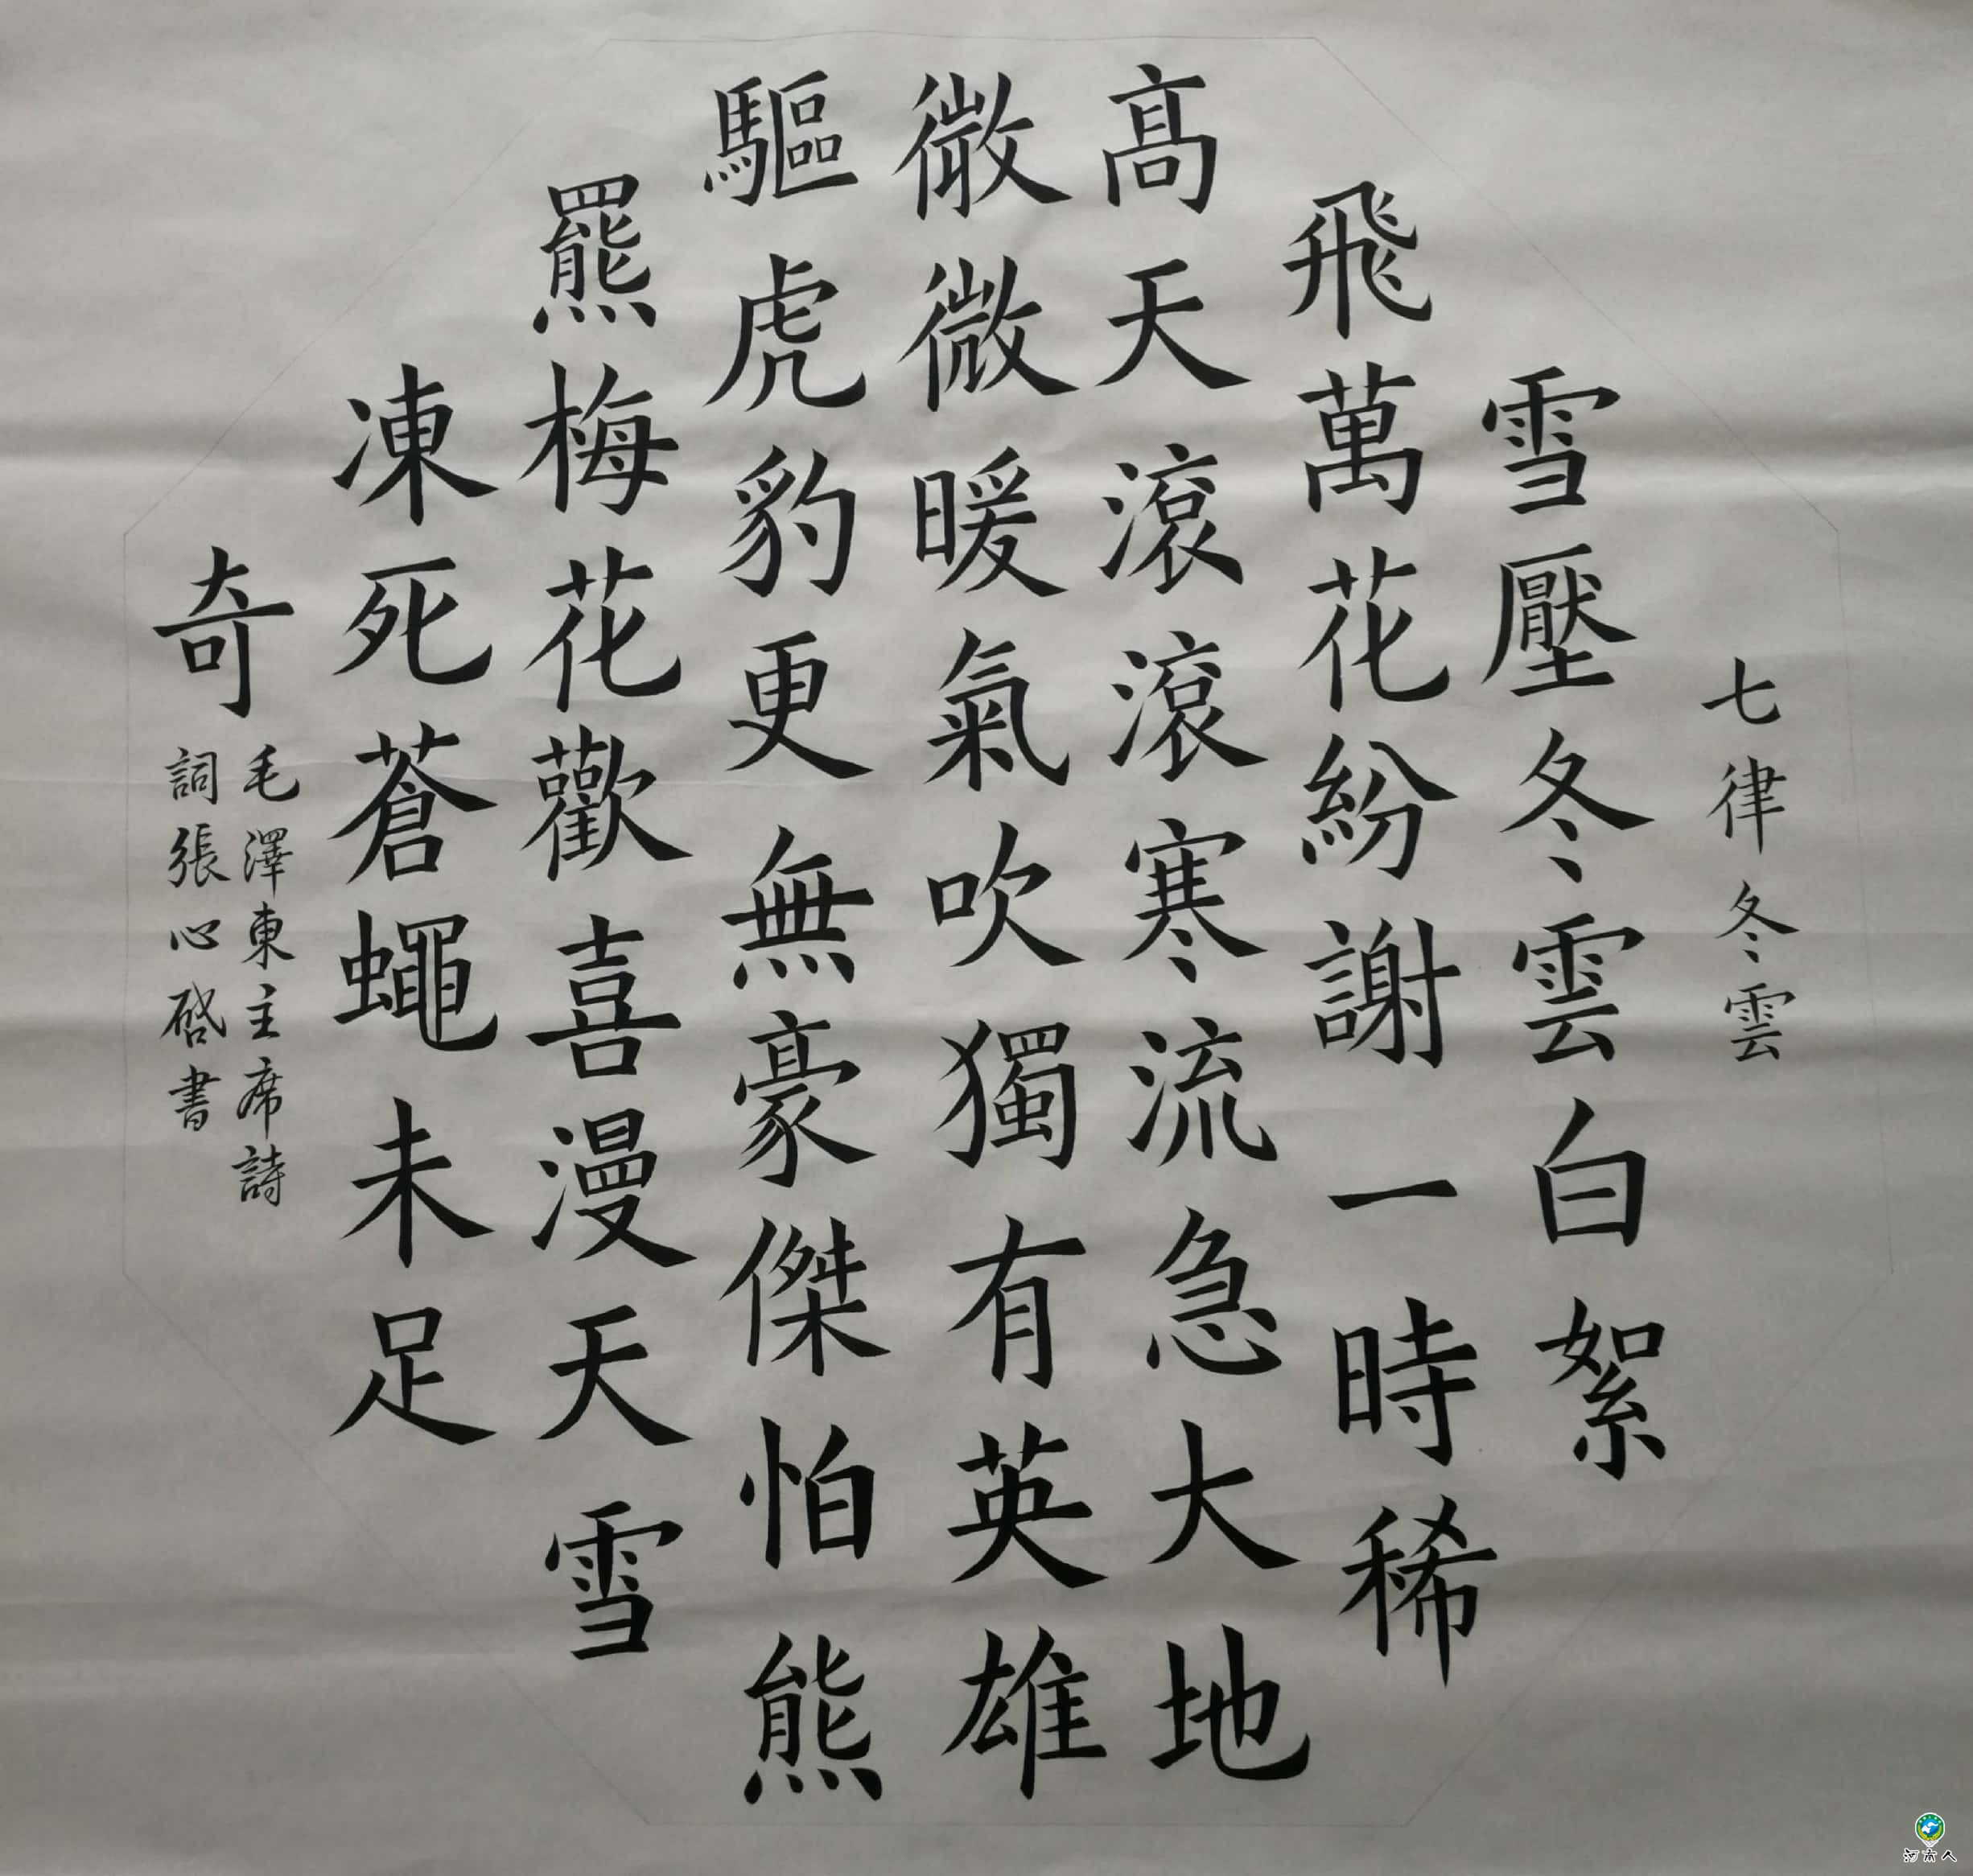 七律冬雲
雪壓冬雲白絮
飛萬花紛謝一時稀
高天滾滾寒流急大地
微微暖氣吹獨有英雄
驅虎豹更無豪傑怕熊
羆梅花歡喜漫天雪
凍死蒼蠅未足
奇
毛澤東主席詩
詞張心啓書
河南人